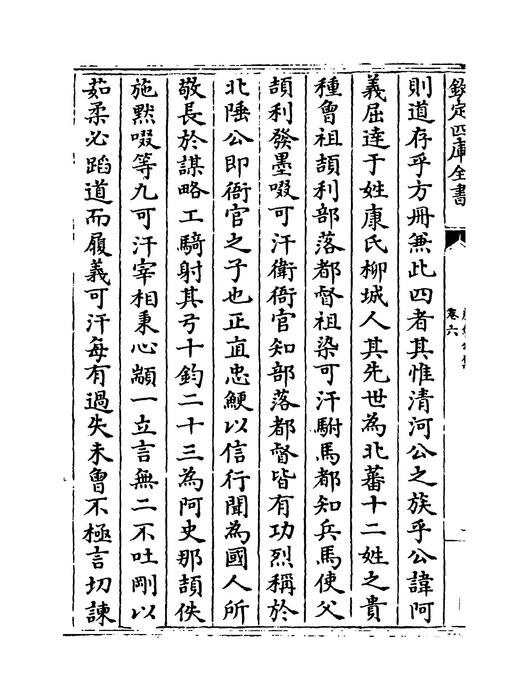 欽定四庫全書
卷六
則道存乎方冊兼此四者其惟清河公之族乎公諱阿
義屈達干姓康氏柳城人其先世為北蕃十二姓之貴
種曾祖頡利部落都督祖染可汗駙馬都知兵馬使父
頡利發墨啜可汗衛衙官知部落都督皆有功烈稱於
北陲公即衙官之子也正直忠鯁以信行聞為國人所
敬長於謀略工騎射其弓十鈞二十三為阿史那頡佚
施黙啜等九可汗宰相秉心顓一立言無二不吐剛以
茹柔必蹈道而履義可汗每有過失未曾不極言切諫